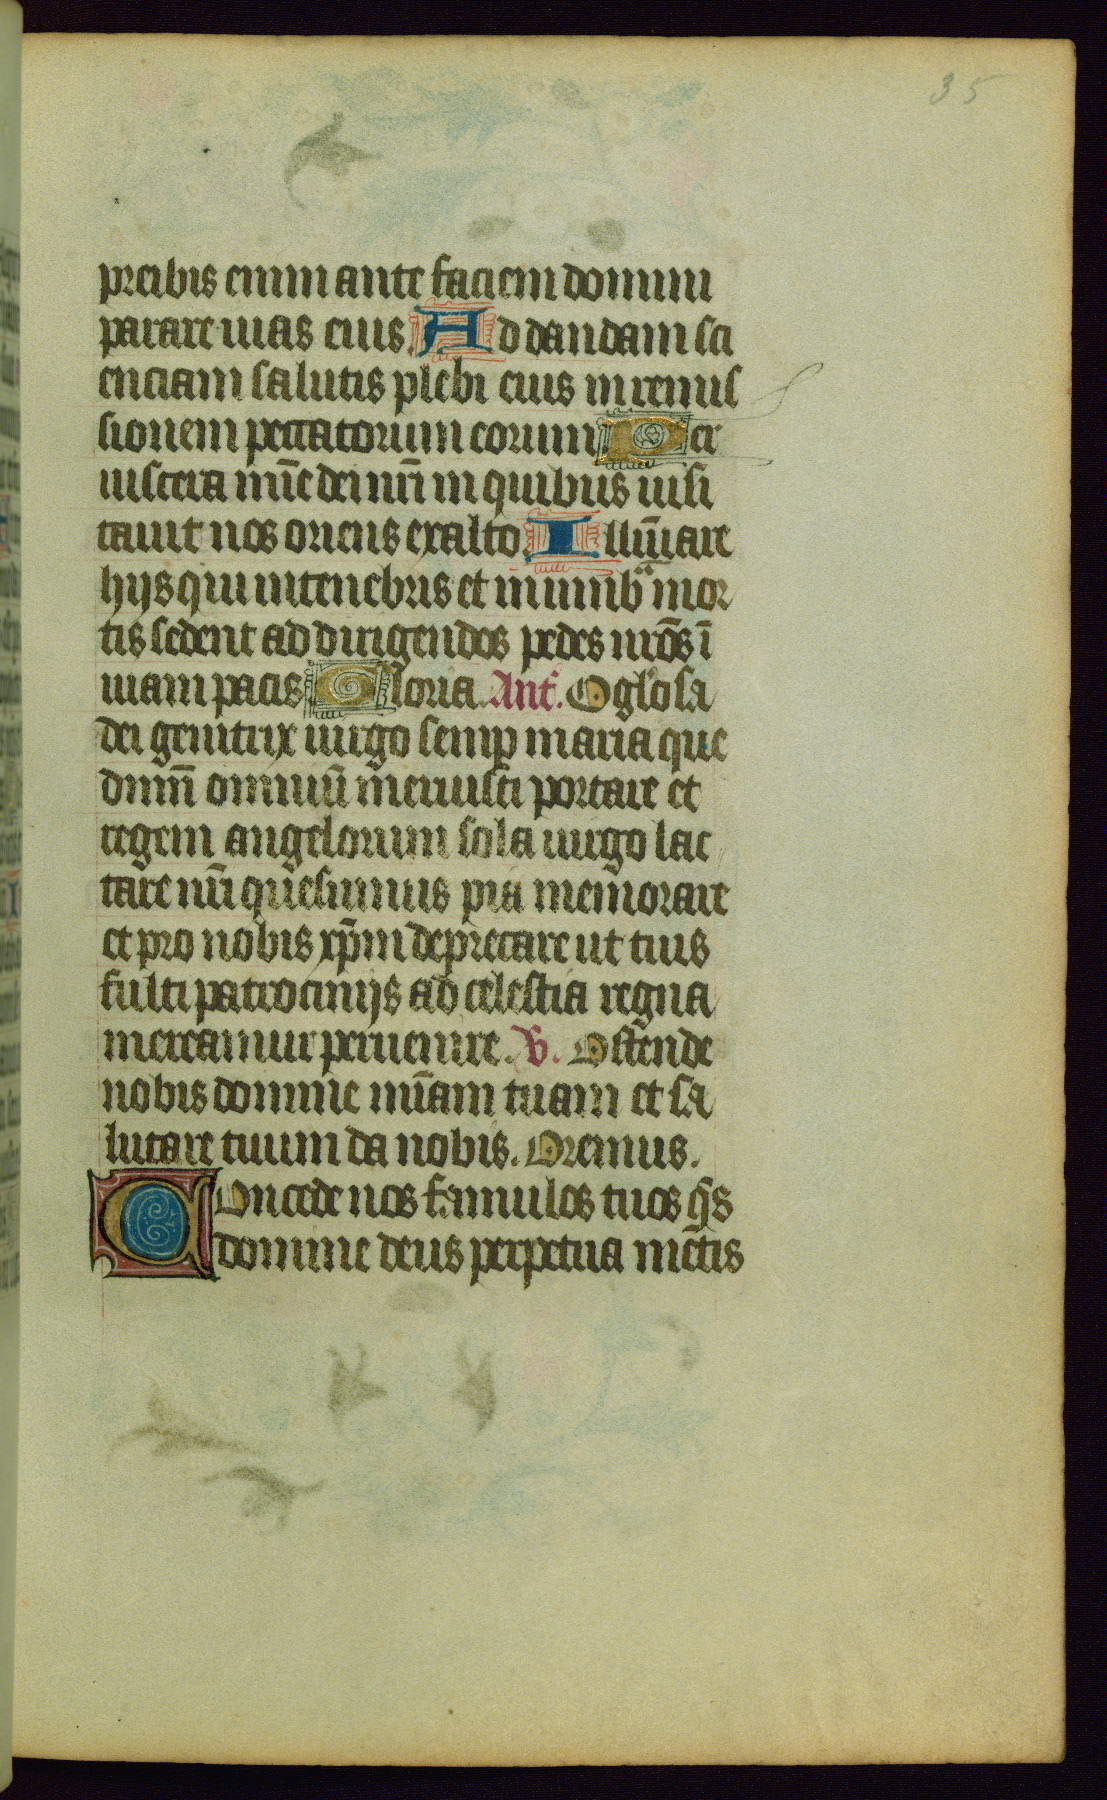 35
preibis enim ante faciem domini
parare uias eius. Ad dandam sci
enciam salutis plebi eius in remis
sionem peccatorum eorum Per
uiscera mi̅e dei nr̅i in quibus uisi
tauit nos oriens ex alto. Illu̅i̅are
hijs qui in tenebris et in umbᵃ mor
tis sedent ad dirigendos pedes nr̅os ī
uiam pacis Gloria. Ant̄. O gl̅osa
dei genitrix uirgo semp̲ maria que
dnm̅ omniū meruisti portare et
regem angelorum sola uirgo lac
tare nr̅i quesumus pia memorare
et pro nobis xp̅m deprecare ut tuis
fulti patrocinijs ad celestia regna
mereamur peruenire. V. Ostende
nobis domine mi̅am tuam et sa
lutare tuum da nobis. Oremus.
Concede nos famulos tuos q̅s
domine deus perpetua me̅tis